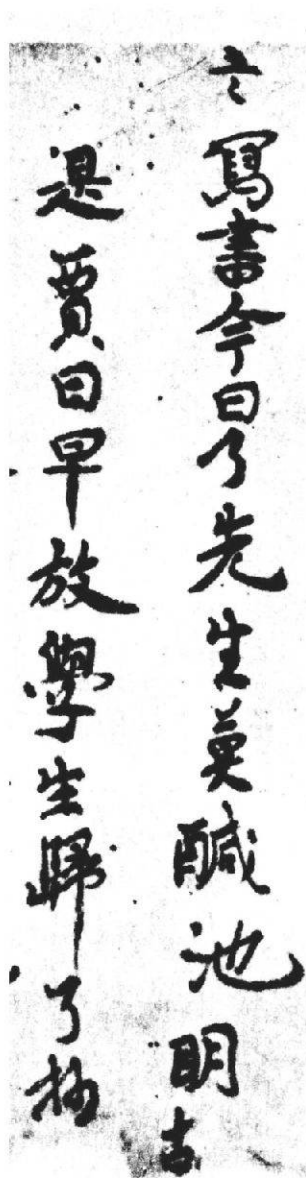 寫書今日了先生莫醎池明
是賈日早放學生歸了